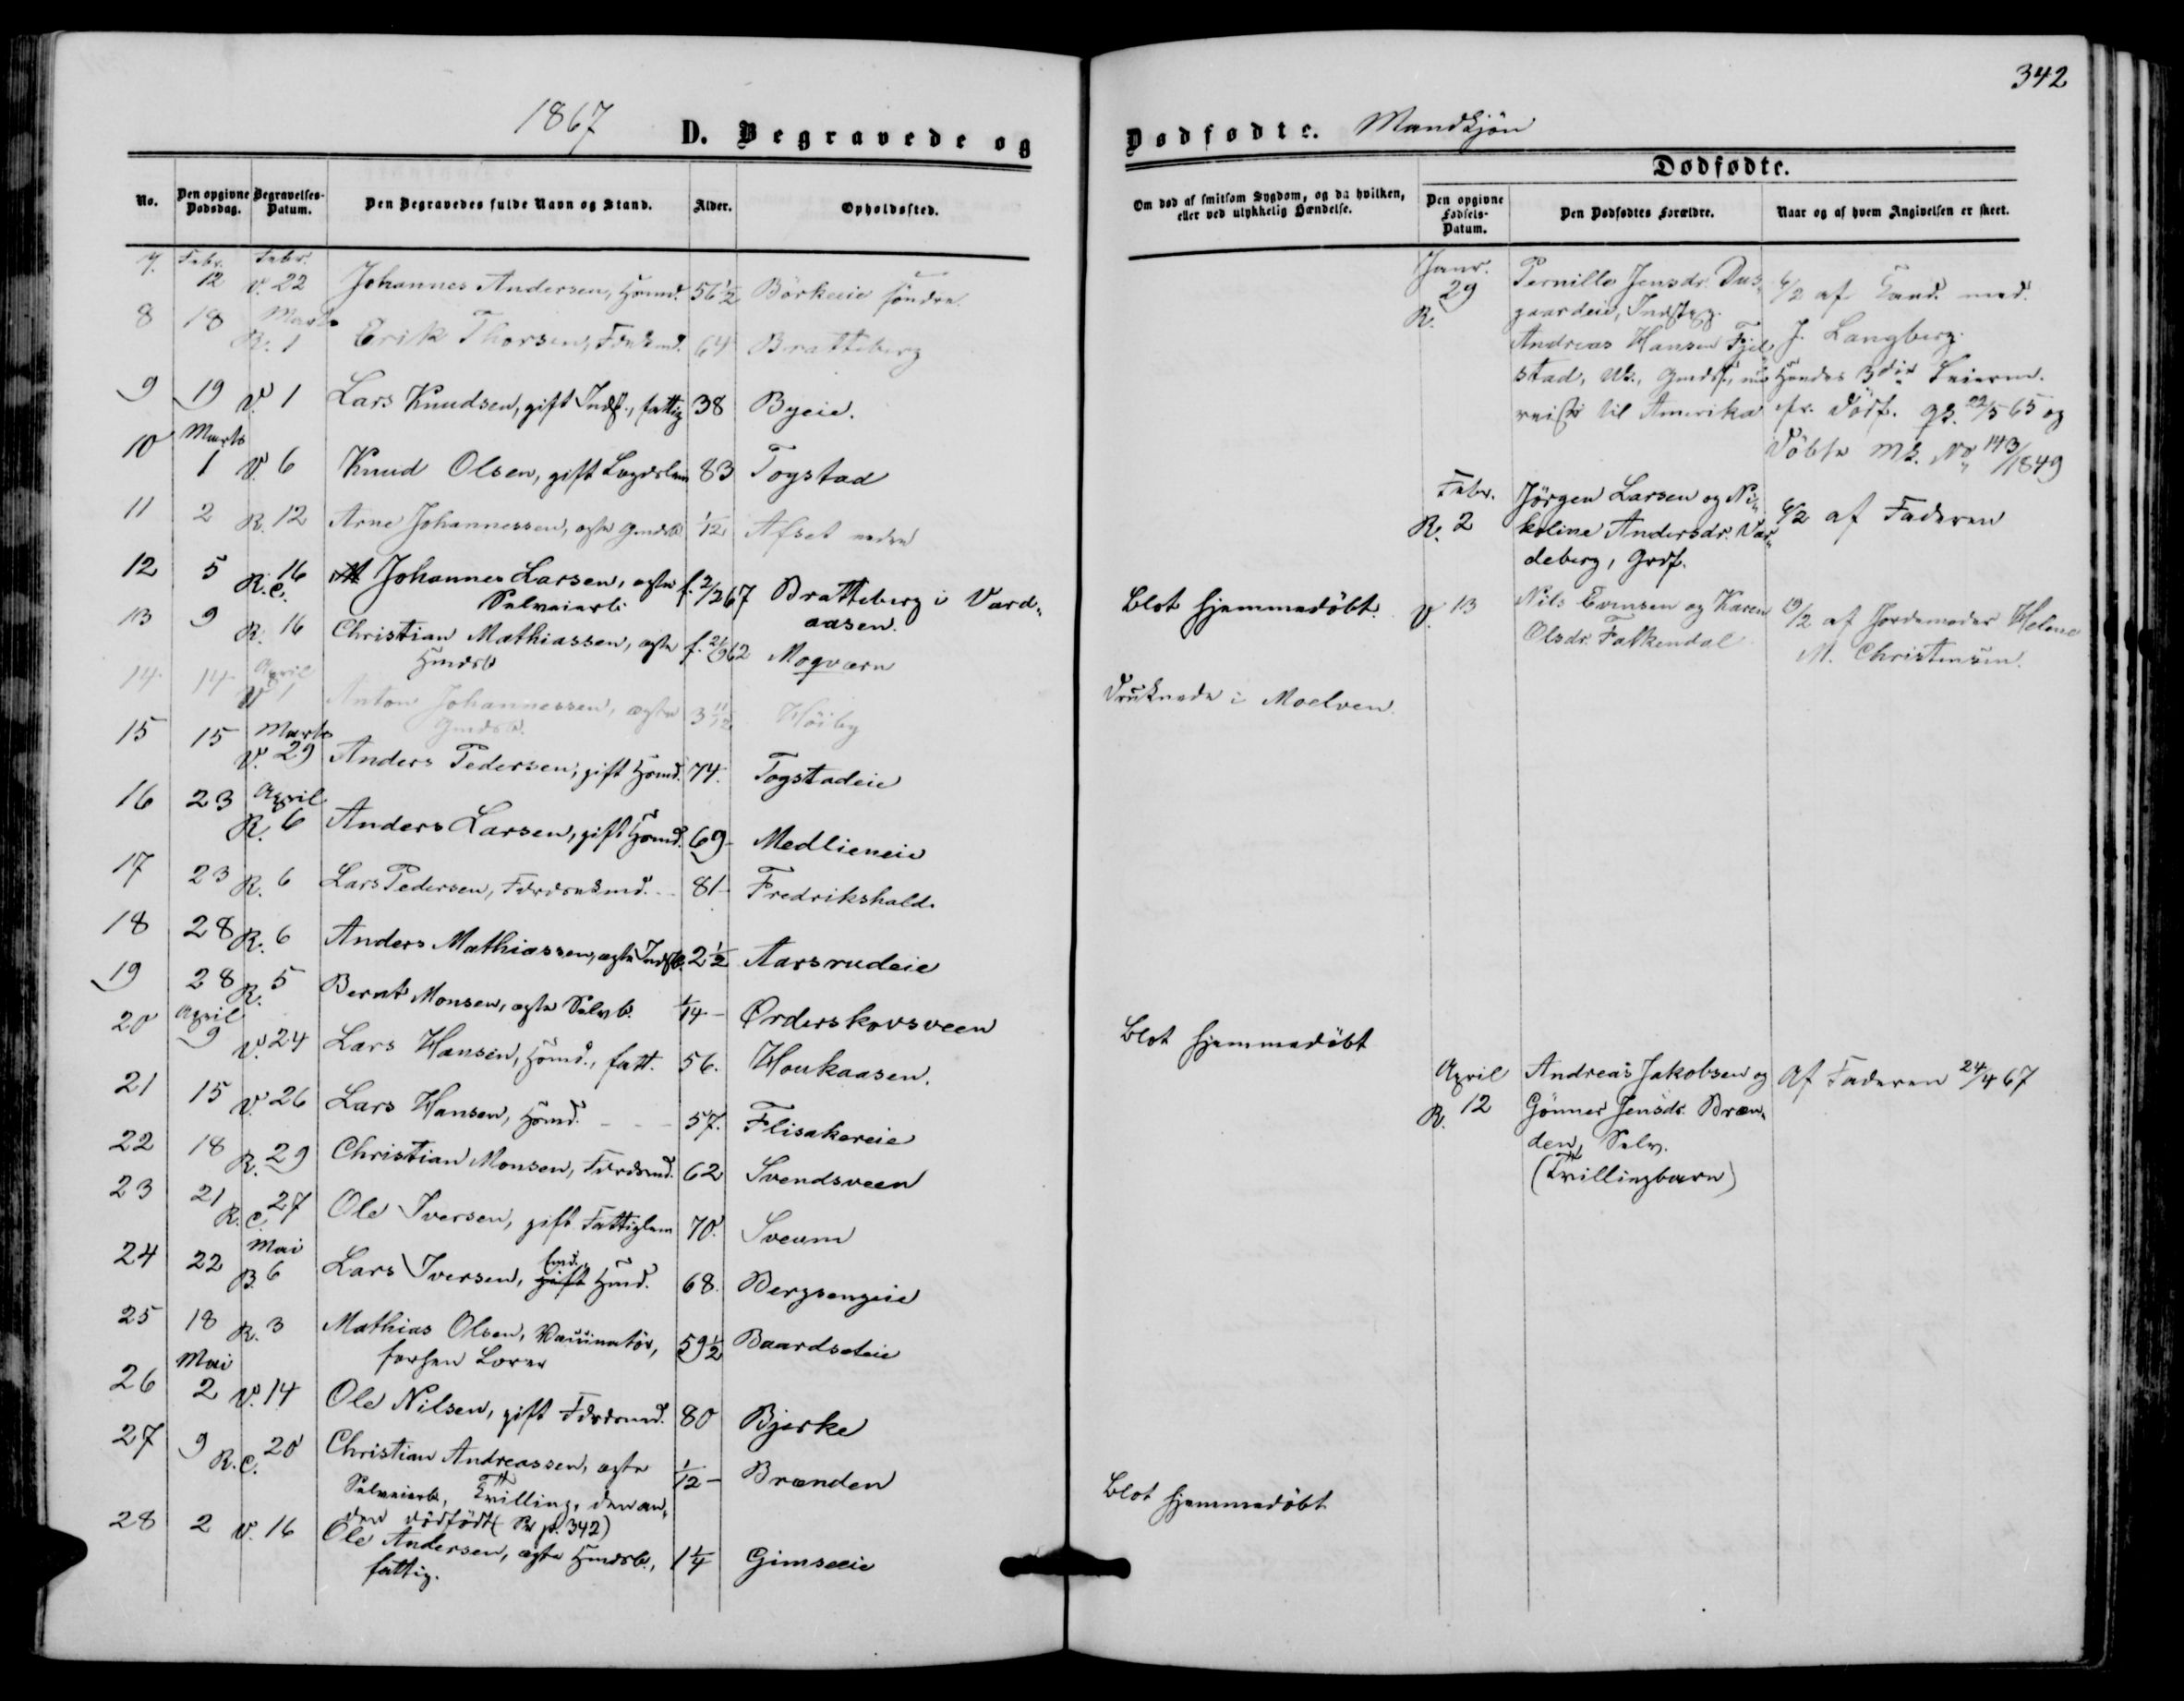 342
1867 D. Begravede og Dødfødte. Mandkjøn
Dødfødte.
No.
Den opgivne Dødsdag.
Begravelses-Datum.
Den Begravedes fulde Navn og Stand.
Alder.
Opholdssted.
Om død af smitsom Sygdom, og da hvilken, eller ved ulykkelig Hændelse.
Den opgivne Fødsels-Datum.
Den Dødfødtes Forældre.
Naar og af hvem Angivelsen er skeet.
7. Febr. 12 Febr. V. 22 Johannes Andersen, Hsmd. 56 1/2 Börkeeie söndre.
8 18 Marts R. 1 Erik Thorsen, 64 Bratteberg
9 19 V. 1 Lars Knudsen, gift Inds., fattig 38 Byeie.
10 Marts 1 V. 6 Knud Olsen, gift Lægdslem 83 Togstad
11 2 R. 12 Arne Johannessen, ægte Gmdsb. 1/12 Afset nedre
12 5 R.C. 16 Johannes Larsen, ægte f. 2/2 67 Bratteberg i Vard-
Selveierb. aasen.
Blot hjemmedöbt.
13 9 R. 16 Christian Mathiassen, ægte f. 21/9 62 Moqværn
Hmdsb
14 14 April V 1 Anton Johannessen, ægte 3 11/12 Höiby
Gmdsb.
Druknede i Moelven.
15 15 Marts V. 29 Anders Pedersen, gift Hsmd. 74. Togstadeie
16 23 April R. 6 Anders Larsen, gift Hsmd. 69 - Medlieneie
17 23 R. 6 Lars Pedersen, 81 - Fredrikshald.
18 28 R. 6 Anders Mathiassen, ægte Indsb. 2 1/2 Aarsrudeie
19 28 R. 5 Bernt Monsen, ægte Selvb. 1/14 - Ørderskovsveen
Blot hjemmedöbt
20 April 9 V. 24 Lars Hansen, Hsmd., fatt. 56. Houkaasen.
21 15 V. 26 Lars Hansen, Hsmd. - - - 57. Flisakereie
22 18 R. 29 Christian Monsen, 62 Svendsveen
23 21 R.C. 27 Ole Iversen, gift Fattiglem 70. Sveum
24 22 Mai B. 6 Lars Iversen, gift Hmd. 68. Bergsengeie
25 18 R. 3 Mathias Olsen, Vaccinatör, 59 1/2 Baardseteie
forhen Lærer
26 Mai 2 V. 14 Ole Nilsen, gift 80 Bjerke
27 9 R.C. 20 Christian Andreassen, ægte 1/12 - Brænden
Selveierb., Tvilling, den an-
den dödfödt (Se p. 342)
Blot hjemmedöbt
28 2 V. 16 Ole Andersen, ægte Hmdsb., 1 1/4 Gimseeie
fattig.
Janr. 29 R.
Pernille Jensdr. Dus-
gaardeie,
Andreas Hansen Fjel-
stad, Uk., Gmds., nu
reist til Amerika
6/2 af Cand. med.
J. Langberg.
Hendes 3die Leierm.
cfr. dödf. qk. 22/5 65 og
Döbte Mk. No 143/1849
Febr. R. 2
Jörgen Larsen og Ni-
koline Andersdr. Var-
deberg, Grdf.
6/2 af Faderen
V. 13
Nils Evensen og Karen
Olsdr. Falkendal
19/2 af Jordemoder Helene
M. Christensen.
April R. 12
Andreas Jakobsen og
Gönner Jensdr. Bræn-
den, Selv.
(Tvillingbarn)
Af Faderen 24/4 67